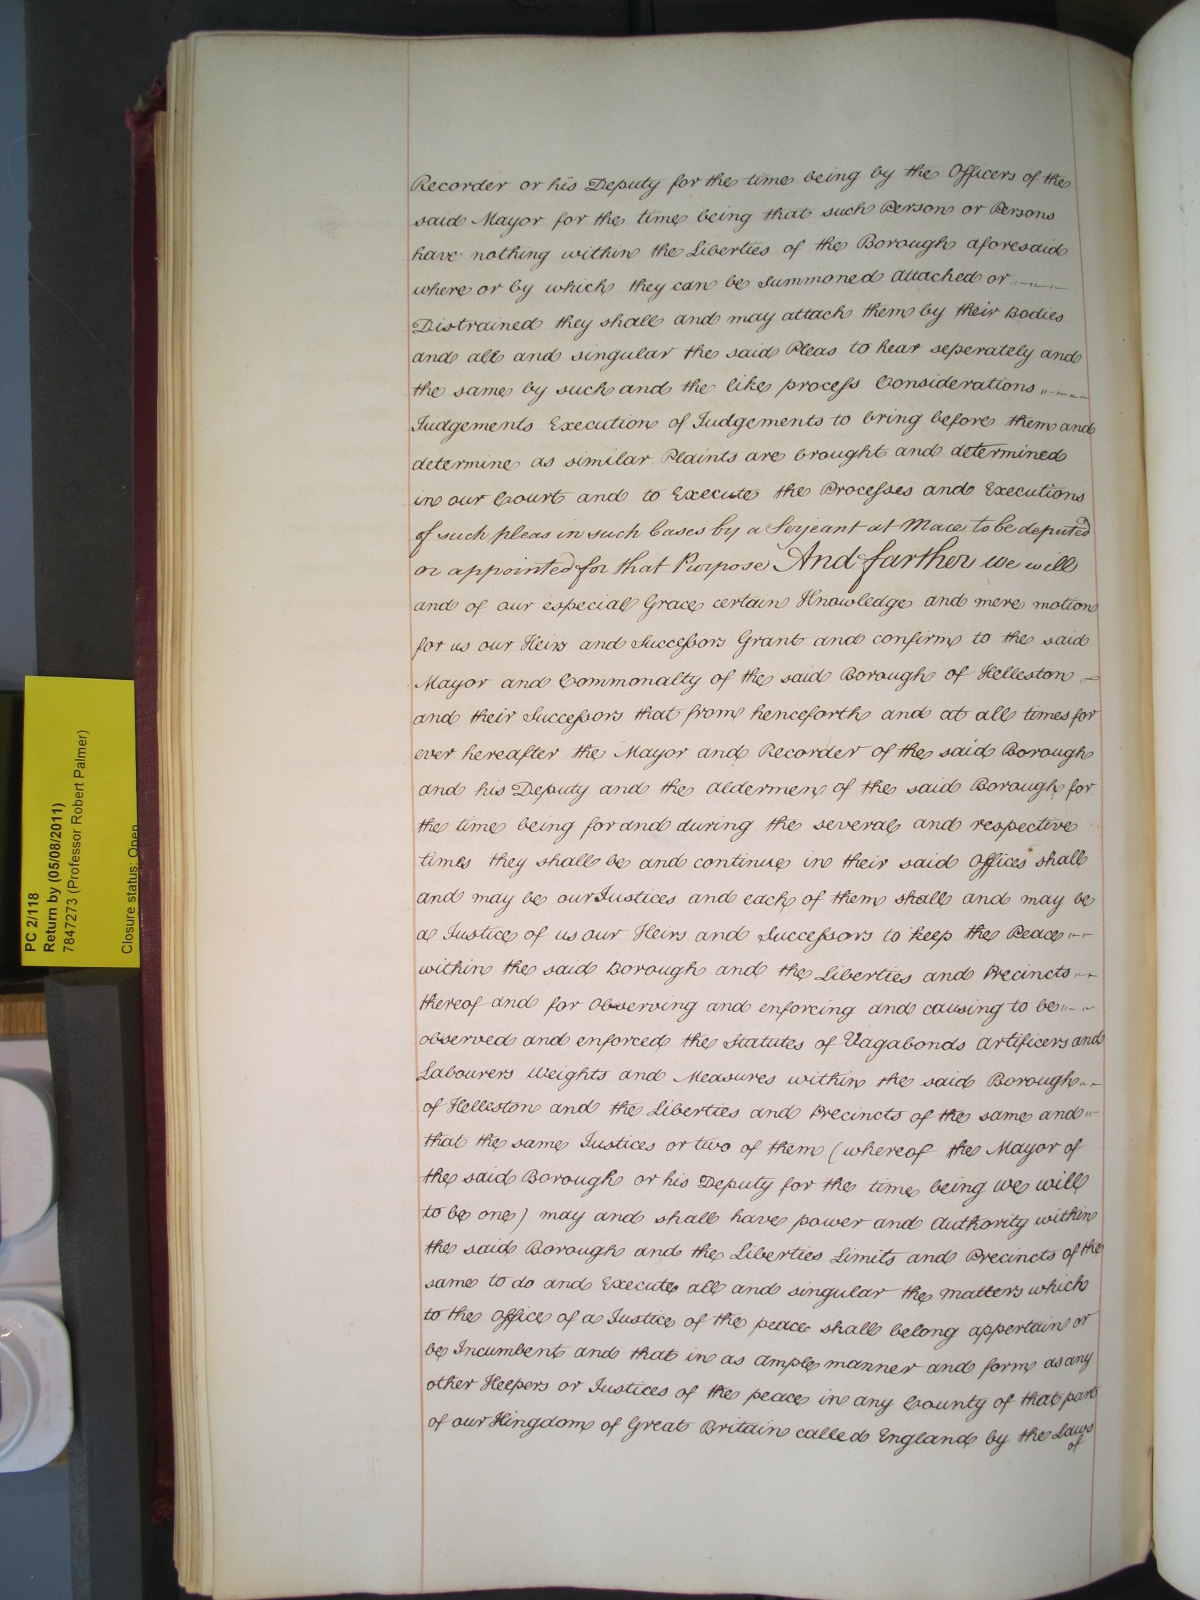 Recorder or his Deputy for the time being by the Officers of the
said Mayor for the time being that such Person or Persons
have nothing within the Liberties of the Borough aforesaid
where or by which they can be Summoned Attached or
Distrained they shall and may attach them by their Bodies
and all and singular the said Pleas to hear seperately and
the same by such and the like process Considerations
Judgements Execution of Judgements to bring before them and
determine as similar Plaints are brought and determined
in our Court and to Execute the Processes and Executions
of such pleas in such Cases by a Serjeant at Mace to be deputed
or appointed for that Purpose And farther we will
and of our especial Grace certain Knowledge and mere motion
for us our Heirs and Successors Grant and confirm to the said
Mayor and Commonalty of the said Borough of Helleston
and their Successors that from henceforth and at all times for
ever hereafter the Mayor and Recorder of the said Borough
and his Deputy and the Aldermen of the said Borough for
the time being for and during the several and respective
times they shall be and continue in their said Offices shall
and may be our Justices and each of them shall and may be
a Justice of us our Heirs and Successors to keep the Peace
within the said Borough and the Liberties and Precincts
thereof and for Observing and enforcing and causing to be
observed and enforced the Statutes of Vagabonds Artificers and
Labourers Weights and Measures within the said Borough
of Helleston and the Liberties and Precincts of the same and
that the same Justices or two of them (whereof the Mayor of
the said Borough or his Deputy for the time being we will
to be one) may and shall have power and Authority within
the said Borough and the Liberties Limits and Precincts of the
same to do and Execute all and singular the matters which
to the Office of a Justice of the peace shall belong appertain or
be Incumbent and that in as Ample manner and form as any
other Keepers or Justices of the peace in any County of that part
of our Kingdom of Great Britain called England by the Laws
of
PC 2/118
Return by (05/08/2011)
7847273 (Professor Robert Palmer)
Closure status: Open